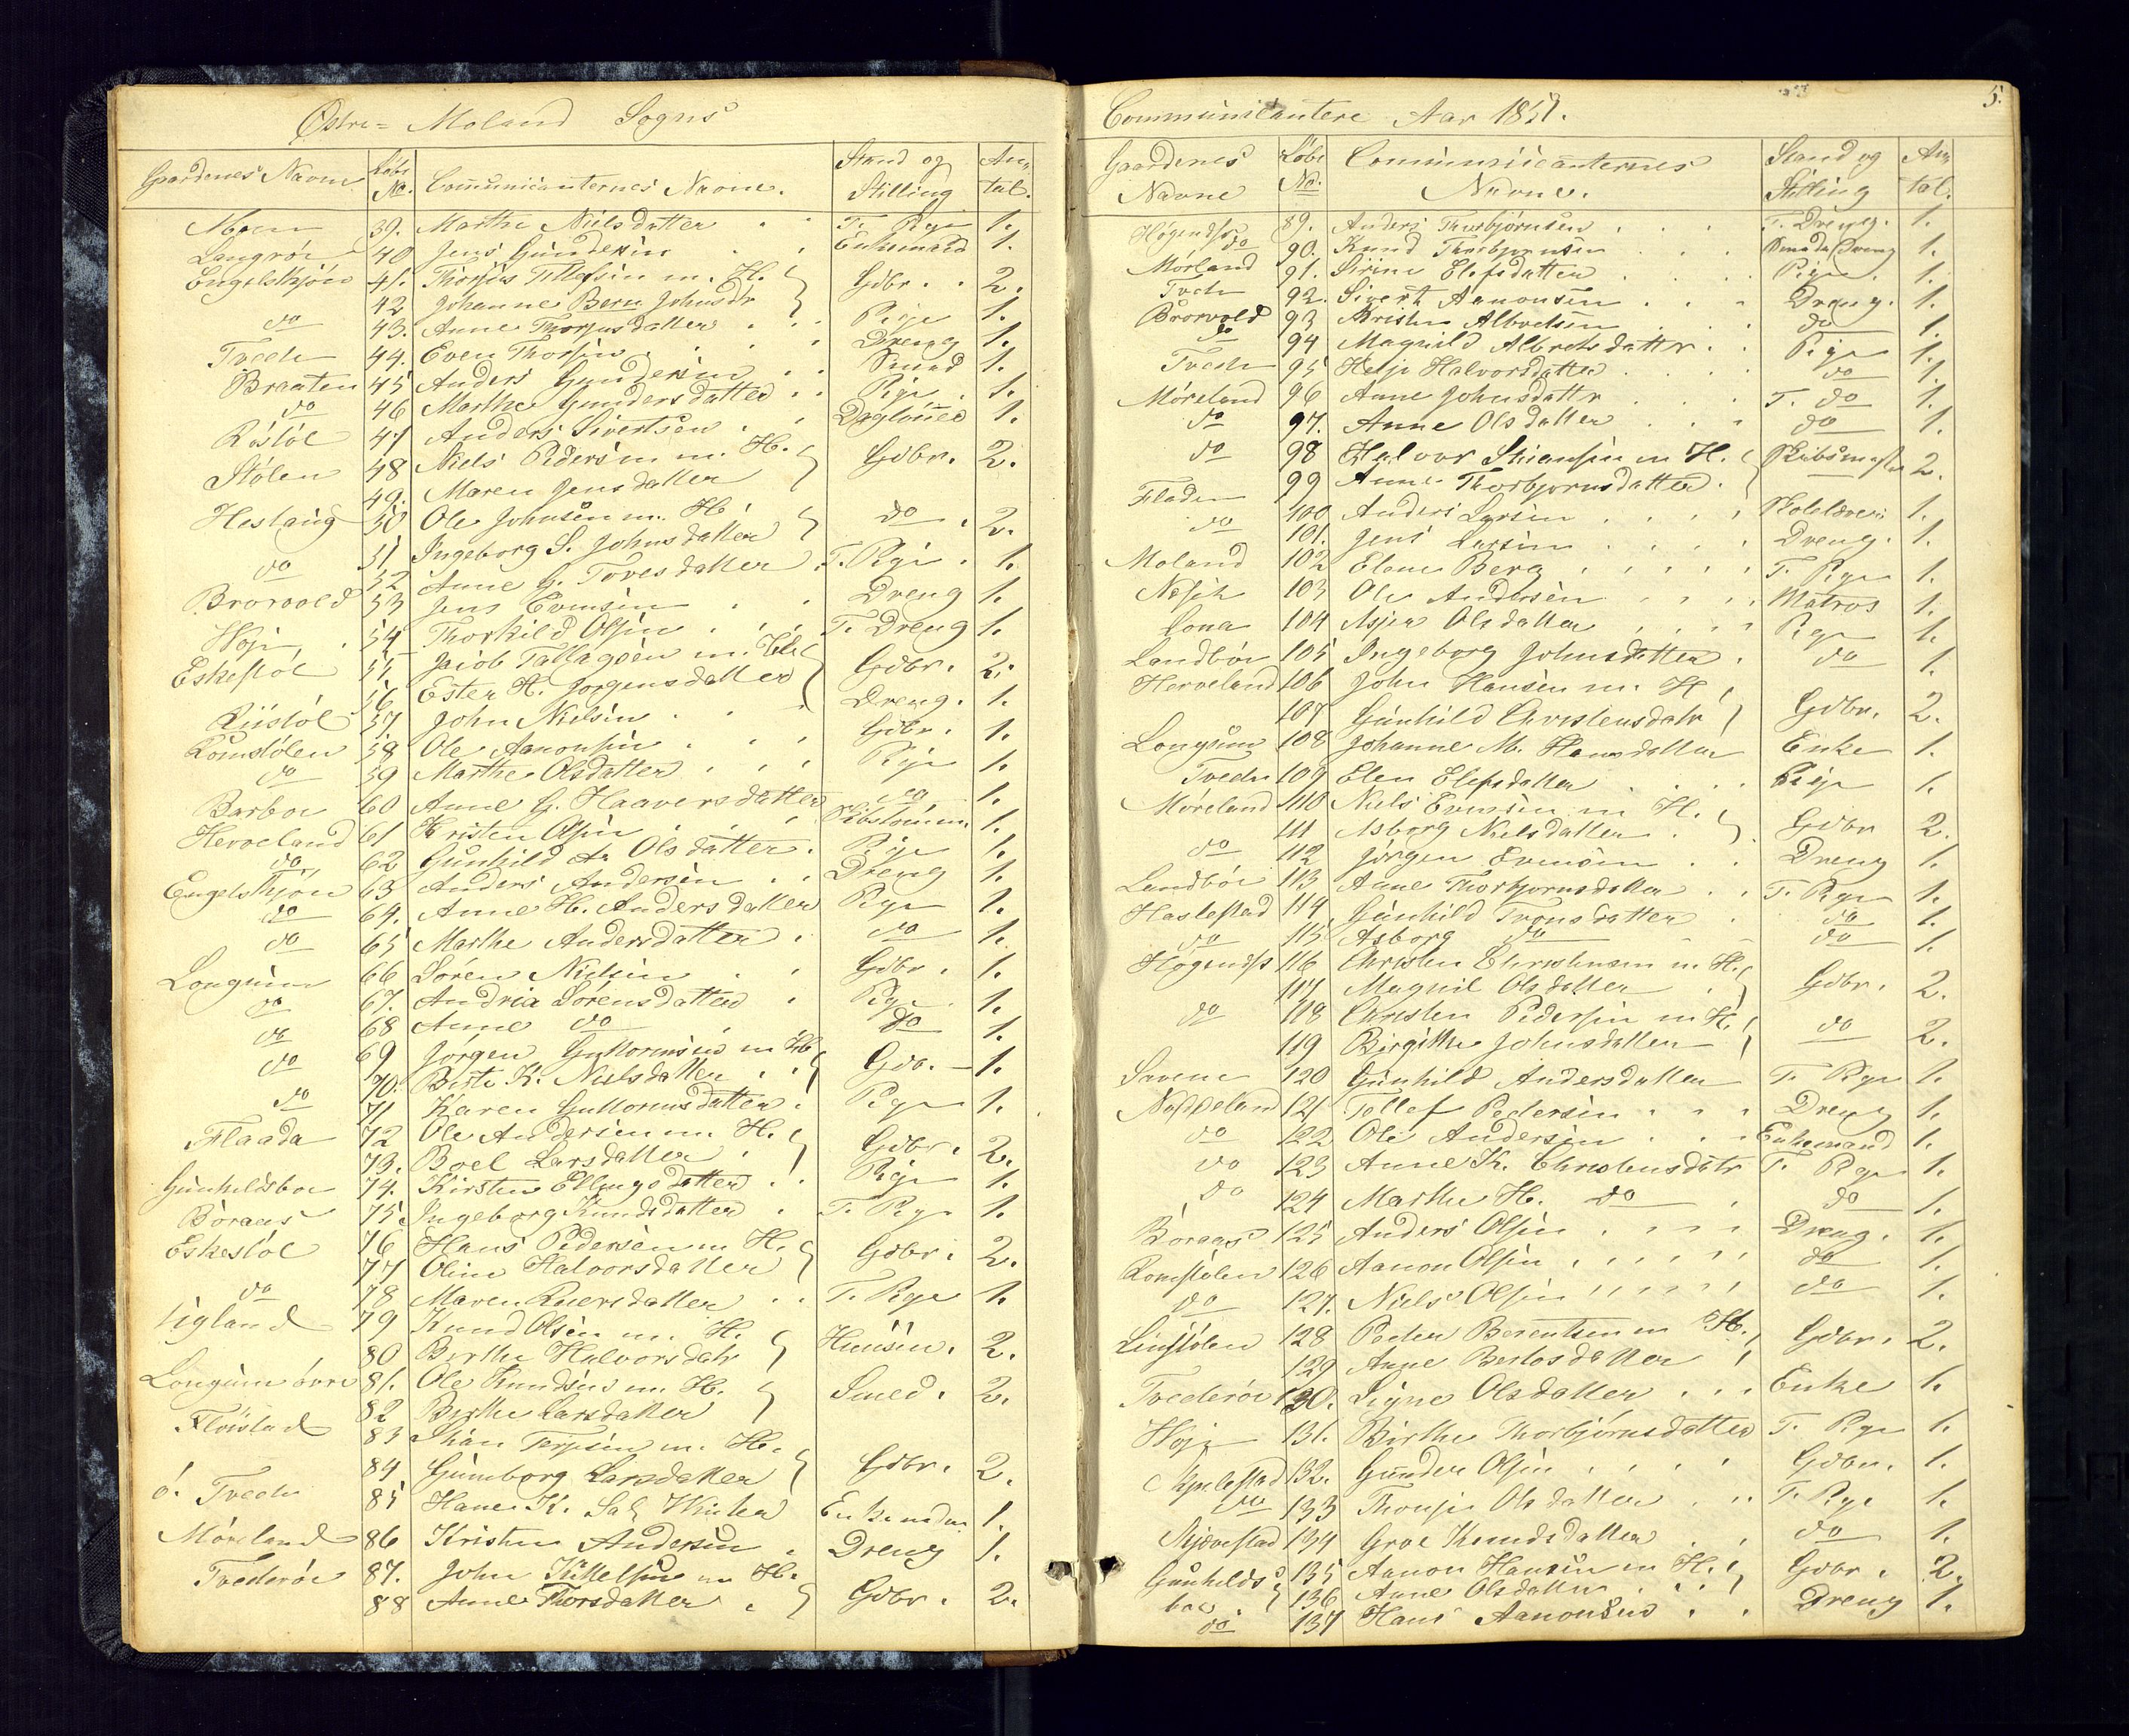 Østre= Moland Sogns
Gaardenes Navne Løbe No. Communicanternes Navne. Stand og Stilling Antal.
Moen 39. Marthe Nielsdatter T. Pige 1.
Langrør 40 Jens Gundersen Enkemand 1.
Engelskjøn 41. Thorjus Tellefsen m. H. Gdbr. 2.
42 Johanne Johnsdr
do 43. Anne Thorjusdatter Pige 1.
Tvede 44. Even Thorsen Dreng 1.
Braaten 45 Anders Gundersen Smed 1.
do 46 Marthe Gundersdatter Pige 1.
47 Anders Sivertsen 1.
Stølen 48 Niels Pedersen m. H. Gdbr. 2.
49. Maren Jensdatter
50 Ole Johnsen m. H. do 2.
51 Ingeborg S. Johnsdatter
do 52 Anne G. Tovesdatter T. Pige 1.
53 Jens Evensen Dreng 1.
54 Thorkild Olsen T. Dreng 1.
Eskestøl 55. m. H. Gdbr. 2.
56 Ester H. Jørgensdatter
57 John Nielsen Dreng. 1.
Romstølen 58 Ole Aanonsen Gdbr. 1.
do 59 Marthe Olsdatter Pige 1.
Barboe 60 Anne G. Haaversdatter do 1.
Herveland 61 Kristen Olsen 1.
do 62 Gunhild A. Olsdatter Pige 1.
Engelskjøn 63 Anders Andersen Dreng 1.
do 64. Anne H. Andersdatter Pige 1.
do 65 Marthe Andersdatter do 1.
Longum 66 Søren Nielsen Gdbr. 1.
do 67. Andria Sørensdatter Pige 1.
do 68 Anne do do 1.
do 69 Jørgen Guttormsen m H. Gdb. 1.
70. Birte K. Nielsdatter
do 71 Karen Guttormsdatter Pige 1.
Flaada 72 Ole Andersen m. H. Gdbr. 2.
73. Boel Larsdatter
Gunhildsboe 74. Kirsten Ellingsdatter Pige 1.
Boraas 75 Ingeborg Knudsdatter T. Pige 1.
Eskestøl 76 Hans Pedersen m H. Gdbr. 2.
77 Oline Halvorsdatter
do 78 Maren T. Pige 1.
Vigland 79 Knud Olsen m. H. Huusm. 2.
80 Birthe Halvorsdatr
Longum øvre 81. Ole Knudsen m. H. Smed. 2.
82 Birthe Larsdatter
Fløistad 83 Terjesen m. H. Gdbr. 2.
84 Gunborg Larsdatter
ø. Tvede 85 1.
Møreland 86 Kristen Andersen Dreng 1.
Tvederør 87. John Kittelsen m H. Gdbr. 2.
88 Anne Thorsdatter
Communicantere Aar 1851. 5.
Gaardenes Navne Løbe No. Communicanternes Navne. Stand og Stilling Antal.
89. Anders Thorbjørnsen T. Dreng. 1.
do 90. Knud Thorbjørnsen Smeddreng 1.
Mørland 91. Sirine Elefsdatter Pige 1.
Tvede 92. Sivert Aanonsen Dreng. 1.
Brorvold 93 Kristen Albretsen do 1.
do 94 Magnild Albretsdattr Pige 1.
Tvede 95 Helje Halvorsdatter do 1.
Møreland 96 Anne Johnsdattr T. do 1.
do 97. Anne Olsdatter do 1.
do 98 Halvor m H. 2.
99 Anne Thorbjørnsdatter
Fladen 100 Anders Larsen Skolelærer 1.
do 101. Jens Larsen Dreng. 1.
Moland 102 Elene Berg T. Pige 1.
103 Ole Andersen Matros 1.
Lona 104 Asjer Olsdatter Pige 1.
Landbør 105 Ingeborg Johnsdatter do 1.
Herveland 106 John Hansen m. H.
107 Gunhild Christensdatr Gdbr. 2.
Longum 108 Johanne M. Hansdatter Enke 1.
Tvede 109 Elen Elefsdatter Pige 1.
Møreland 110 Niels Evensen m H. Gdbr 2.
111 Asborg Nielsdatter
do 112 Jørgen Evensen Dreng 1.
Landbør 113 Anne Thorbjørnsdatter T. Pige 1.
Haslestad 114 Gunhild Tronsdatter do 1.
do 115 Asborg do do 1.
116 Christen Christensen m H. Gdbr. 2.
117 Magnil Olsdatter
do 118 Christen Pedersen m H. do 2.
119 Birgitthe Johnsdatter
120 Gunhild Andersdatter T. Pige 1.
121 Tellef Pedersen Dreng 1.
do 122 Ole Andersen Enkemand 1.
do 123 Anne K. Christensdatr T. Pige 1.
do 124 Marthe H. do do 1.
Boraas 125 Anders Olsen Dreng. 1.
Romstølen 126 Aanon Olsen do 1.
do 127. Niels Olsen do 1.
128 Peder Berentsen m H. Gdbr. 2.
129 Anne
Tvederør 130. Signe Olsdatter Enke 1.
131. Birthe Thorbjørnsdatter T. Pige 1.
132. Gunder Olsen Gdbr. 1.
do 133 Olsdatter T. Pige 1.
134 Groe Knudsdatter do 1.
Gunhilds 135 Aanon Hansen m H. Gdbr. 2.
boe 136 Anne Olsdatter
do 137 Hans Aanonsen Dreng 1.